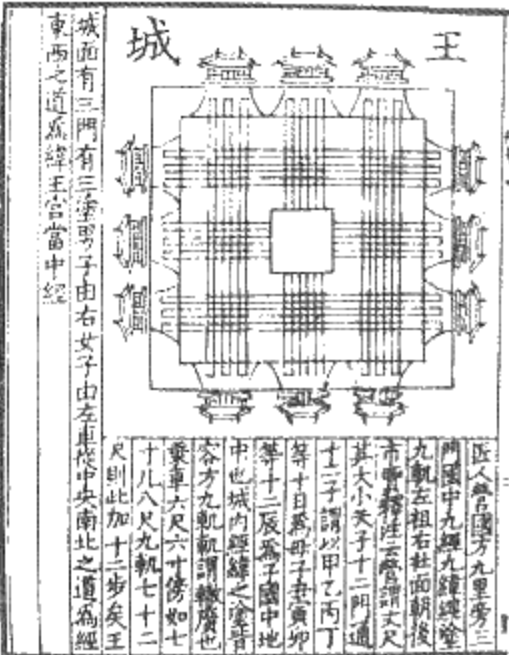 王城
匠人營國方九里旁三
門國中九經九緯經塗
九軌左祖右社面朝後
市賈釋注云營謂丈尺
其大小天子十二門通
十二子謂以甲乙丙丁
等十日爲母子丑寅卯
等十二辰爲子國中地
中也城内經緯之塗皆
容方九軌軌謂轍廣也
乘車六尺六寸傍加七
寸凡八尺九軌七十二
尺則此加十二步矣王
城面有三門有三塗男子由右女子由左車從中央南北之道爲經
東西之道爲緯王宮當中經